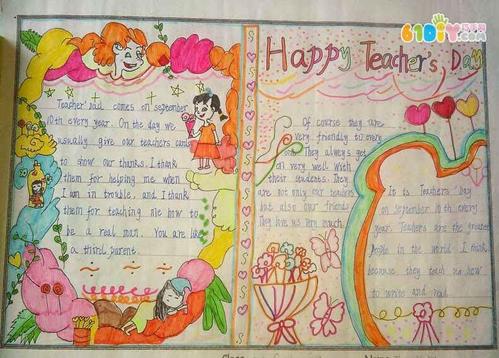 61DIY.com
Happy Teacher's Day
Teacher comes on september
10th every year. On the day we
usually give our teachers card
to show our thanks. I thank
them for helping me when
I am in trouble, and I thank
them for teaching me how to
be a real man. You are like
a third parent.
Of course they are
very friendly to every
one. They always get
on very well with
their students. They
are not only our teachers
but also our friends
They love us very much.
It is Teachers' Day
on September 10th every
year. Teachers are the greatest
people in the world. I think
because they teach us how
to write and read.
Class